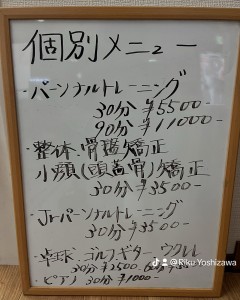 個別メニュー
・パーソナルトレーニング
30分 ¥5500-
90分 ¥11000-
・整体・骨盤矯正
小顔(頭蓋骨)矯正
30分 ¥3500-
・Jrパーソナルトレーニング
30分 ¥3500-
・卓球・ゴルフ・ギター ウクレレ
30分 ¥2500
@Riku Yoshizawa
・ピアノ 30分 ¥1000-